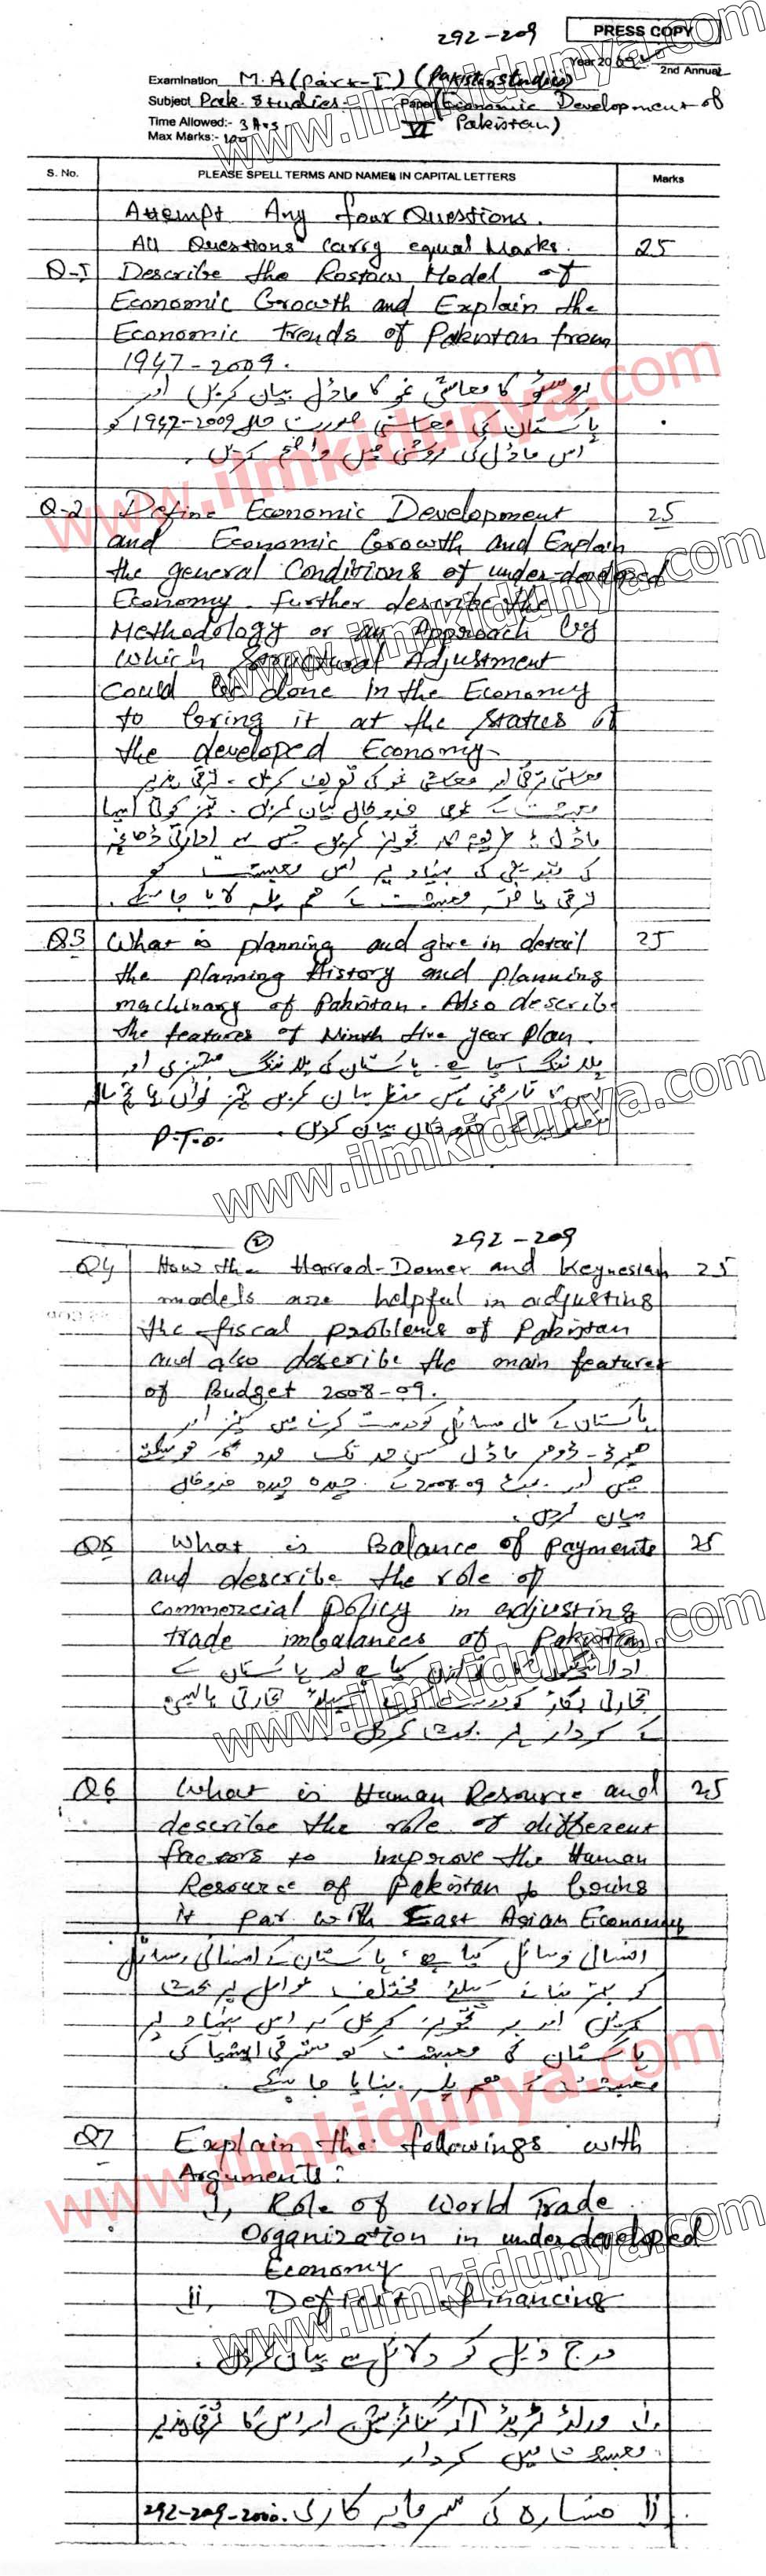 292-209
PRESS COPY
Year 2009
2nd Annual
Examination M.A (Part-I) (Pakistan Studies)
Subject Pak. Studies Paper (Economic Development of
Time Allowed:- 3 Hrs VI Pakistan)
Max Marks:- 100
S. No. PLEASE SPELL TERMS AND NAMES IN CAPITAL LETTERS Marks
Attempt Any four Questions.
All Questions carry equal Marks. 25
Q-1 Describe the Rostow Model of
Economic Growth and Explain the
Economic trends of Pakistan from
1947-2009.
روسٹو کا معاشی نمو کا ماڈل بیان کریں اور
پاکستان کی معاشی صورت حال 1947-2009 کو
اس ماڈل کی روشنی میں واضح کریں۔
Q-2 Define Economic Development 25
and Economic Growth and Explain
the general Conditions of under-developed
Economy. further describe the
Methodology or an Approach by
which Structural Adjustment
Could be done in the Economy
to bring it at the status of
the developed Economy.
معاشی ترقی اور معاشی نمو کی تعریف کریں۔ ترقی پذیر
معیشت کے عمومی خدوخال بیان کریں۔ نیز کوئی ایسا
ماڈل یا طریقہ کار تجویز کریں جس سے ادارتی ڈھانچہ
کی تبدیلی کی بنیاد پر اس معیشت کو
ترقی یافتہ معیشت کے ہم پلہ لایا جا سکے۔
Q3 What is planning and give in detail 25
the planning History and planning
machinary of Pakistan. Also describe
the features of Ninth five year Plan.
پلاننگ کیا ہے۔ پاکستان کی پلاننگ مشینری اور
کا تاریخی پس منظر بیان کریں نیز نواں پانچ سالہ
خدوخال بیان کریں۔
P.T.O.
www.ilmkidunya.com
② 292-209
Q4 How the Harred-Domer and Keynesian 25
models are helpful in adjusting
the fiscal problems of Pakistan
and also describe the main features
of Budget 2008-09.
پاکستان کے مالی مسائل کو درست کرنے میں کینز اور
ہیرڈ-ڈومر ماڈل کس حد تک مدد گار ہو سکتے
ہیں اور بجٹ 2008-09 کے چیدہ چیدہ خدوخال
بیان کریں۔
Q5 What is Balance of Payments 25
and describe the role of
commercial policy in adjusting
trade imbalances of Pakistan.
ادائیگیوں کا توازن کیا ہے اور پاکستان کے
تجارتی بگاڑ کو درست کرنے کیلئے تجارتی پالیسی
کے کردار پر بحث کریں۔
Q6 What is Human Resource and 25
describe the role of different
factors to improve the Human
Resource of Pakistan to bring
it par with East Asian Economy
انسانی وسائل کیا ہے؟ پاکستان کے انسانی وسائل
کو بہتر بنانے کیلئے مختلف عوامل پر بحث
کریں اور یہ تجویز کریں کہ اس بنیاد پر
پاکستان کی معیشت کو مشرقی ایشیا کی
معیشت کے ہم پلہ بنایا جا سکے۔
Q7 Explain the followings with
Arguments:
i, Role of World Trade
Organization in underdeveloped
Economy
ii, Deficit financing
درج ذیل کو دلائل سے بیان کریں۔
i) ورلڈ ٹریڈ آرگنائزیشن اور اس کا ترقی پذیر
معیشت میں کردار
ii خسارہ کی سرمایہ کاری 292-209-2000.